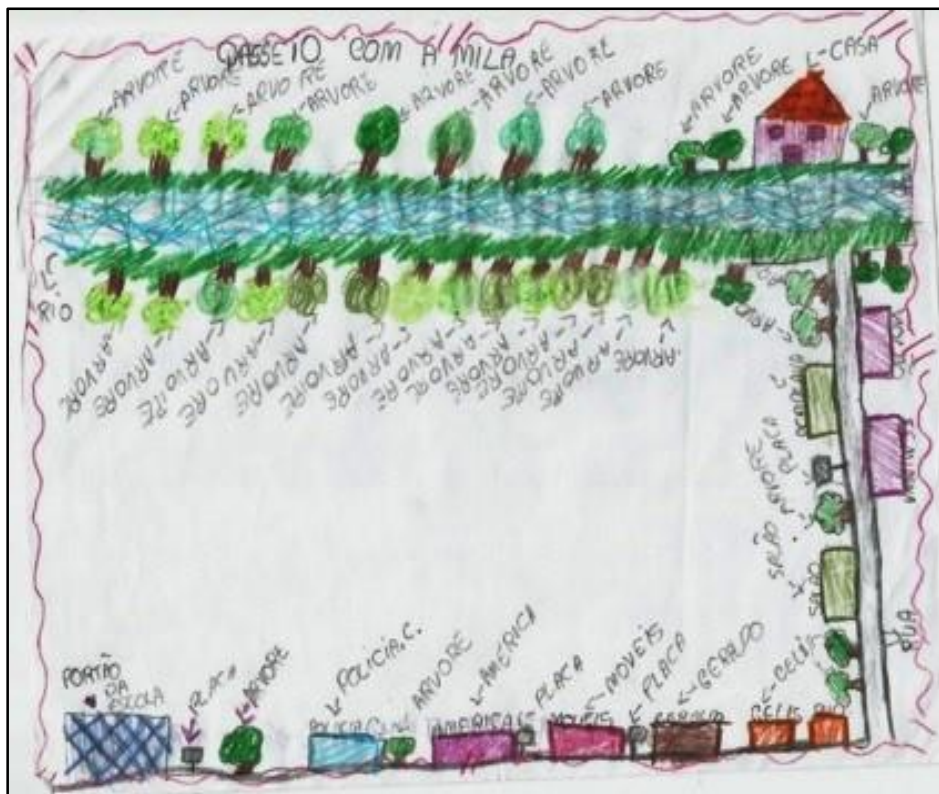 PASSEIO COM A MILA
ARVORE
ARVORE
ARVORE
ARVORE
ARVORE
ARVORE
ARVORE
ARVORE
ARVORE
ARVORE
CASA
ARVORE
RIO
ARVORE
ARVORE
ARVORE
ARVORE
ARVORE
ARVORE
ARVORE
ARVORE
ARVORE
ARVORE
ARVORE
ARVORE
ARVORE
PLACA
ARVORE
SALÃO
SALÃO
RUA
PORTÃO
DA
ESCOLA
PLACA
ARVORE
POLICIA.C.
ARVORE
AMÉRICA
PLACA
MOVEÍS
PLACA
GERALDO
CELIS
AMERICA
MOVEIS
CELIS